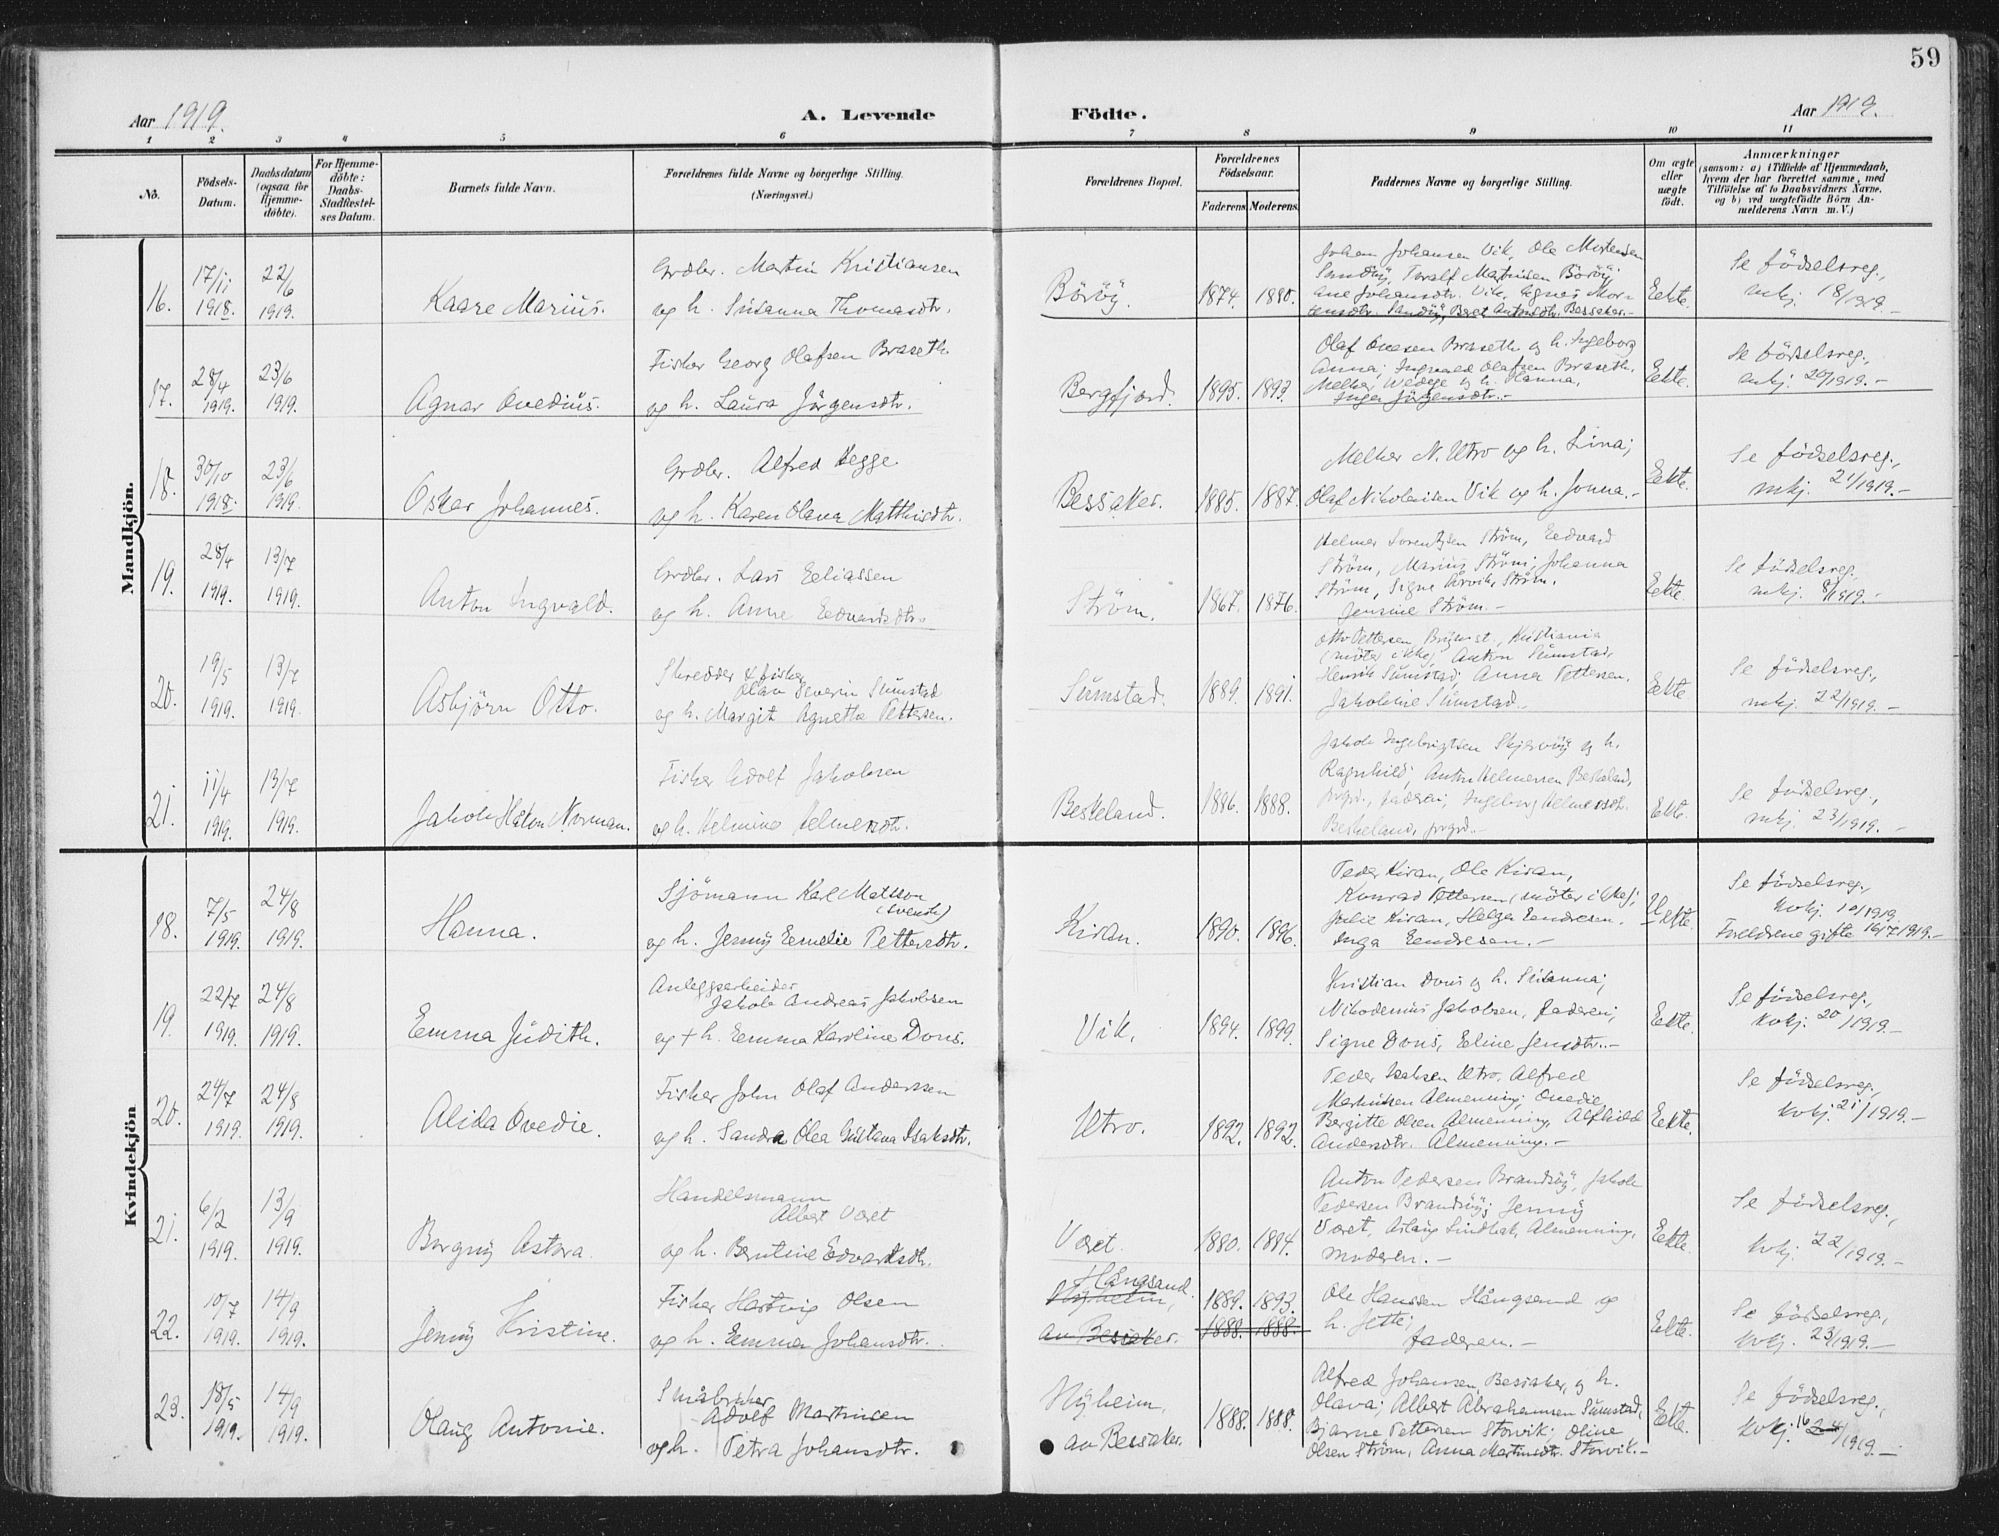 59
Aar 1919.
A. Levende
Födte.
Aar 1919.
1 2 3 4 5 6 7 8 9 10 11
No.
Födsels-
Datum.
Daabsdatum
(ogsaa for
Hjemme-
döbte).
For Hjemme-
döbte:
Daabs-
Stadfæstel-
ses Datum.
Barnets fulde Navn.
Forældrenes fulde Navne og borgerlige Stilling.
(Næringsvei.)
Forældrenes Bopæl.
Forældrenes
Födselsaar.
Faderens. Moderens.
Faddernes Navne og borgerlige Stilling.
Om ægte
eller
uægte
födt.
Anmærkninger
(saasom: a) i Tilfælde af Hjemmedaab,
hvem der har forrettet samme, med
Tilföielse af to Daabsvidners Navne,
og b) ved uægtefödte Börn An-
melderens Navn m. V.)
Mandkjön.
16.
17/11
1918.
22/6
1919.
Kaare Marius.
Grdbr. Martin Kristiansen
og h. Susanna Thomasdtr.
Böröy.
1874. 1880.
Johan Johansen Vik, Ole Mortensen
Sandöy, Toralf Martinsen Böröy,
Ane Johansdtr. Vik, Agnes Mor-
tensdtr. Sandöy, Beret Antonsdtr. Bessaker.-
Eekte.
Se födselsreg.,
mkj. 18/1919.-
17.
28/4
1919.
23/6
1919.
Agnar Ovedius.
Fisker Georg Olafsen Braseth
og h. Laura Jörgensdtr.
Bergfjord.
1895. 1893.
Olaf Ovesen Braseth og h. Ingeborg
Anna; Ingvald Olafsen Braseth,
Melker Wedege og h. Hanna,
Inger Jörgensdtr.-
Eekte.
Se födselsreg.,
mkj. 20/1919.-
18.
30/10
1918.
23/6
1919.
Oskar Johannes.
Grdbr. Alfred Hegge
og h. Karen Olava Matthisdtr.
Bessaker.
1885. 1887.
Melker N. Utro og h. Lina;
Olaf Nikolaisen Vik og h. Jonna.-
Eekte.
Se födselsreg.,
mkj. 21/1919.-
19.
28/4
1919.
13/7
1919.
Anton Ingvald.
Grdbr. Lars Eeliassen
og h. Anne Eedvardsdtr.
Ström.
1867. 1876.
Helmer Lorentsen Ström, Eedvard
Ström, Marius Ström; Johanna
Ström, Signe Årvik, Ström,
Jensine Ström.-
Eekte.
Se födselsreg.,
mkj. 8/1919.-
20.
19/5
1919.
13/7
1919.
Asbjörn Otto.
Skredder & fisker
Olav Severin Sumstad
og h. Margit Agnetha Pettersen.
Sumstad.
1889. 1891.
Otto Pettersen, Kristiania
(möter ikke), Anton Sumstad,
Henrik Sumstad; Anna Pettersen,
Jakobine Sumstad.-
Eekte
Se födselsreg.,
mkj. 22/1919.-
21.
11/4
1919.
13/7
1919.
Jakob Håkon Norman.
Fisker Adolf Jakobsen
og h. Helmine Helmersdtr.
Beskeland.
1886. 1888.
Jakob Ingebrigtsen Skjervöy og h.
Ragnhild; Anton Helmersen Beskeland,
faderen; Ingeborg Helmersdtr.
Beskeland,
Eekte.
Se födselsreg.,
mkj. 23/1919.-
Kvindekjön
18.
7/5
1919.
24/8
1919.
Hanna.
Sjömann Karl Matsson
(svensk)
og h. Jenny Eemelie Pettersdtr.
Kiran.
1890. 1896.
Peder Kiran, Ole Kiran,
Konrad Pettersen (möter ikke);
Julie Kiran, Helga Eendresen.
Inga Eendresen.-
Uekte.
Se födselsreg.,
kvkj. 10/1919.
Foreldrene gifte 16/7 1919.-
19.
22/7
1919.
24/8
1919.
Eemma Judith.
Anleggsarbeider
Jakob Andreas Jakobsen
og + h. Eemma Karoline Dons.
Vik.
1894. 1899.
Kristian Dons og h. Susanna;
Nikodemus Jakobsen, faderen;
Signe Dons, Eeline Jensdtr.-
Eekte.
Se födselsreg.,
kvkj. 20/1919.-
20.
24/7
1919.
24/8
1919.
Alida Ovedie.
Fisker John Olaf Anderssen
og h. Sandra Olea Gustava Isaksdtr.
Utro.
1892. 1892.
Peder Isaksen Utro, Alfred
Martinsen Almenning; Ovedie
Bergitte Olsen Almenning, Alfhild
Andersdtr. Almenning.-
Eekte.
Se födselsreg.,
kvkj. 21/1919.-
21.
6/2
1919.
13/9
1919.
Borgny Astora.
Handelsmann
Albert Været
og h. Berntine Edvardsdtr.
Været.
1880. 1884.
Anton Pedersen Brandsöy, Jakob
Pedersen Brandsöy; Jenny
Været, Aslaug Lindbak, Almenning,
moderen.-
Eekte.
Se födselsreg.,
kvkj. 22/1919.-
22.
10/7
1919.
14/9
1919.
Jenny Kristine.
Fisker Hartvig Olsen
og h. Eemma Johansdtr.
Hångsand.
Nyheim,
av Bessaker.
1889. 1893.
1888. 1888.
Ole Hanssen Hångsand og
h. Jette;
faderen.-
Eekte.
Se födselsreg.,
kvkj. 23/1919.-
23.
18/5
1919.
14/9
1919.
Olaug Antonie.
Småbruker
Adolf Martinsen
og h. Petra Johansdtr.
Nyheim,
av Bessaker.
1888. 1888.
Alfred Johansen, Bessaker, og h.
Olava; Albert Abrahamsen Sumstad,
Bjarne Pettersen Storvik; Oline
Olsen Ström, Anna Martinsdtr. Storvik.-
Eekte.
Se födselsreg.,
kvkj. 16 24/1919.-